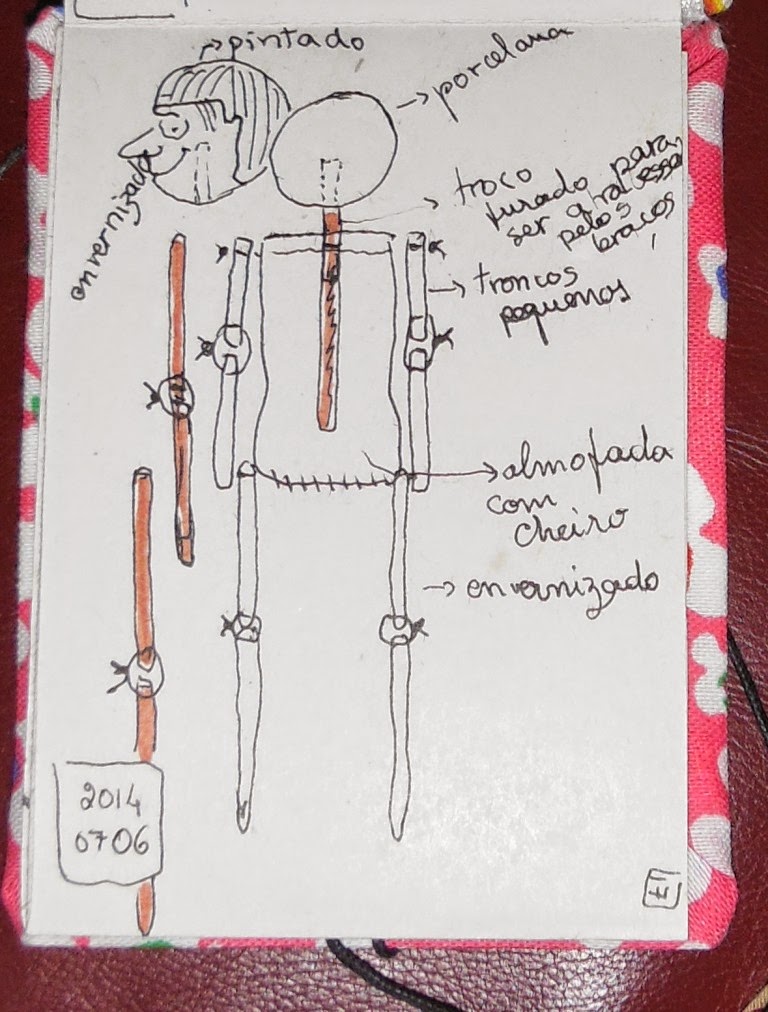 pintado
porcelana
envernizado
troco
furado para
ser atravessa
pelos
braços
troncos
pequenos
almofada
com
cheiro
envernizado
2014
0706
17